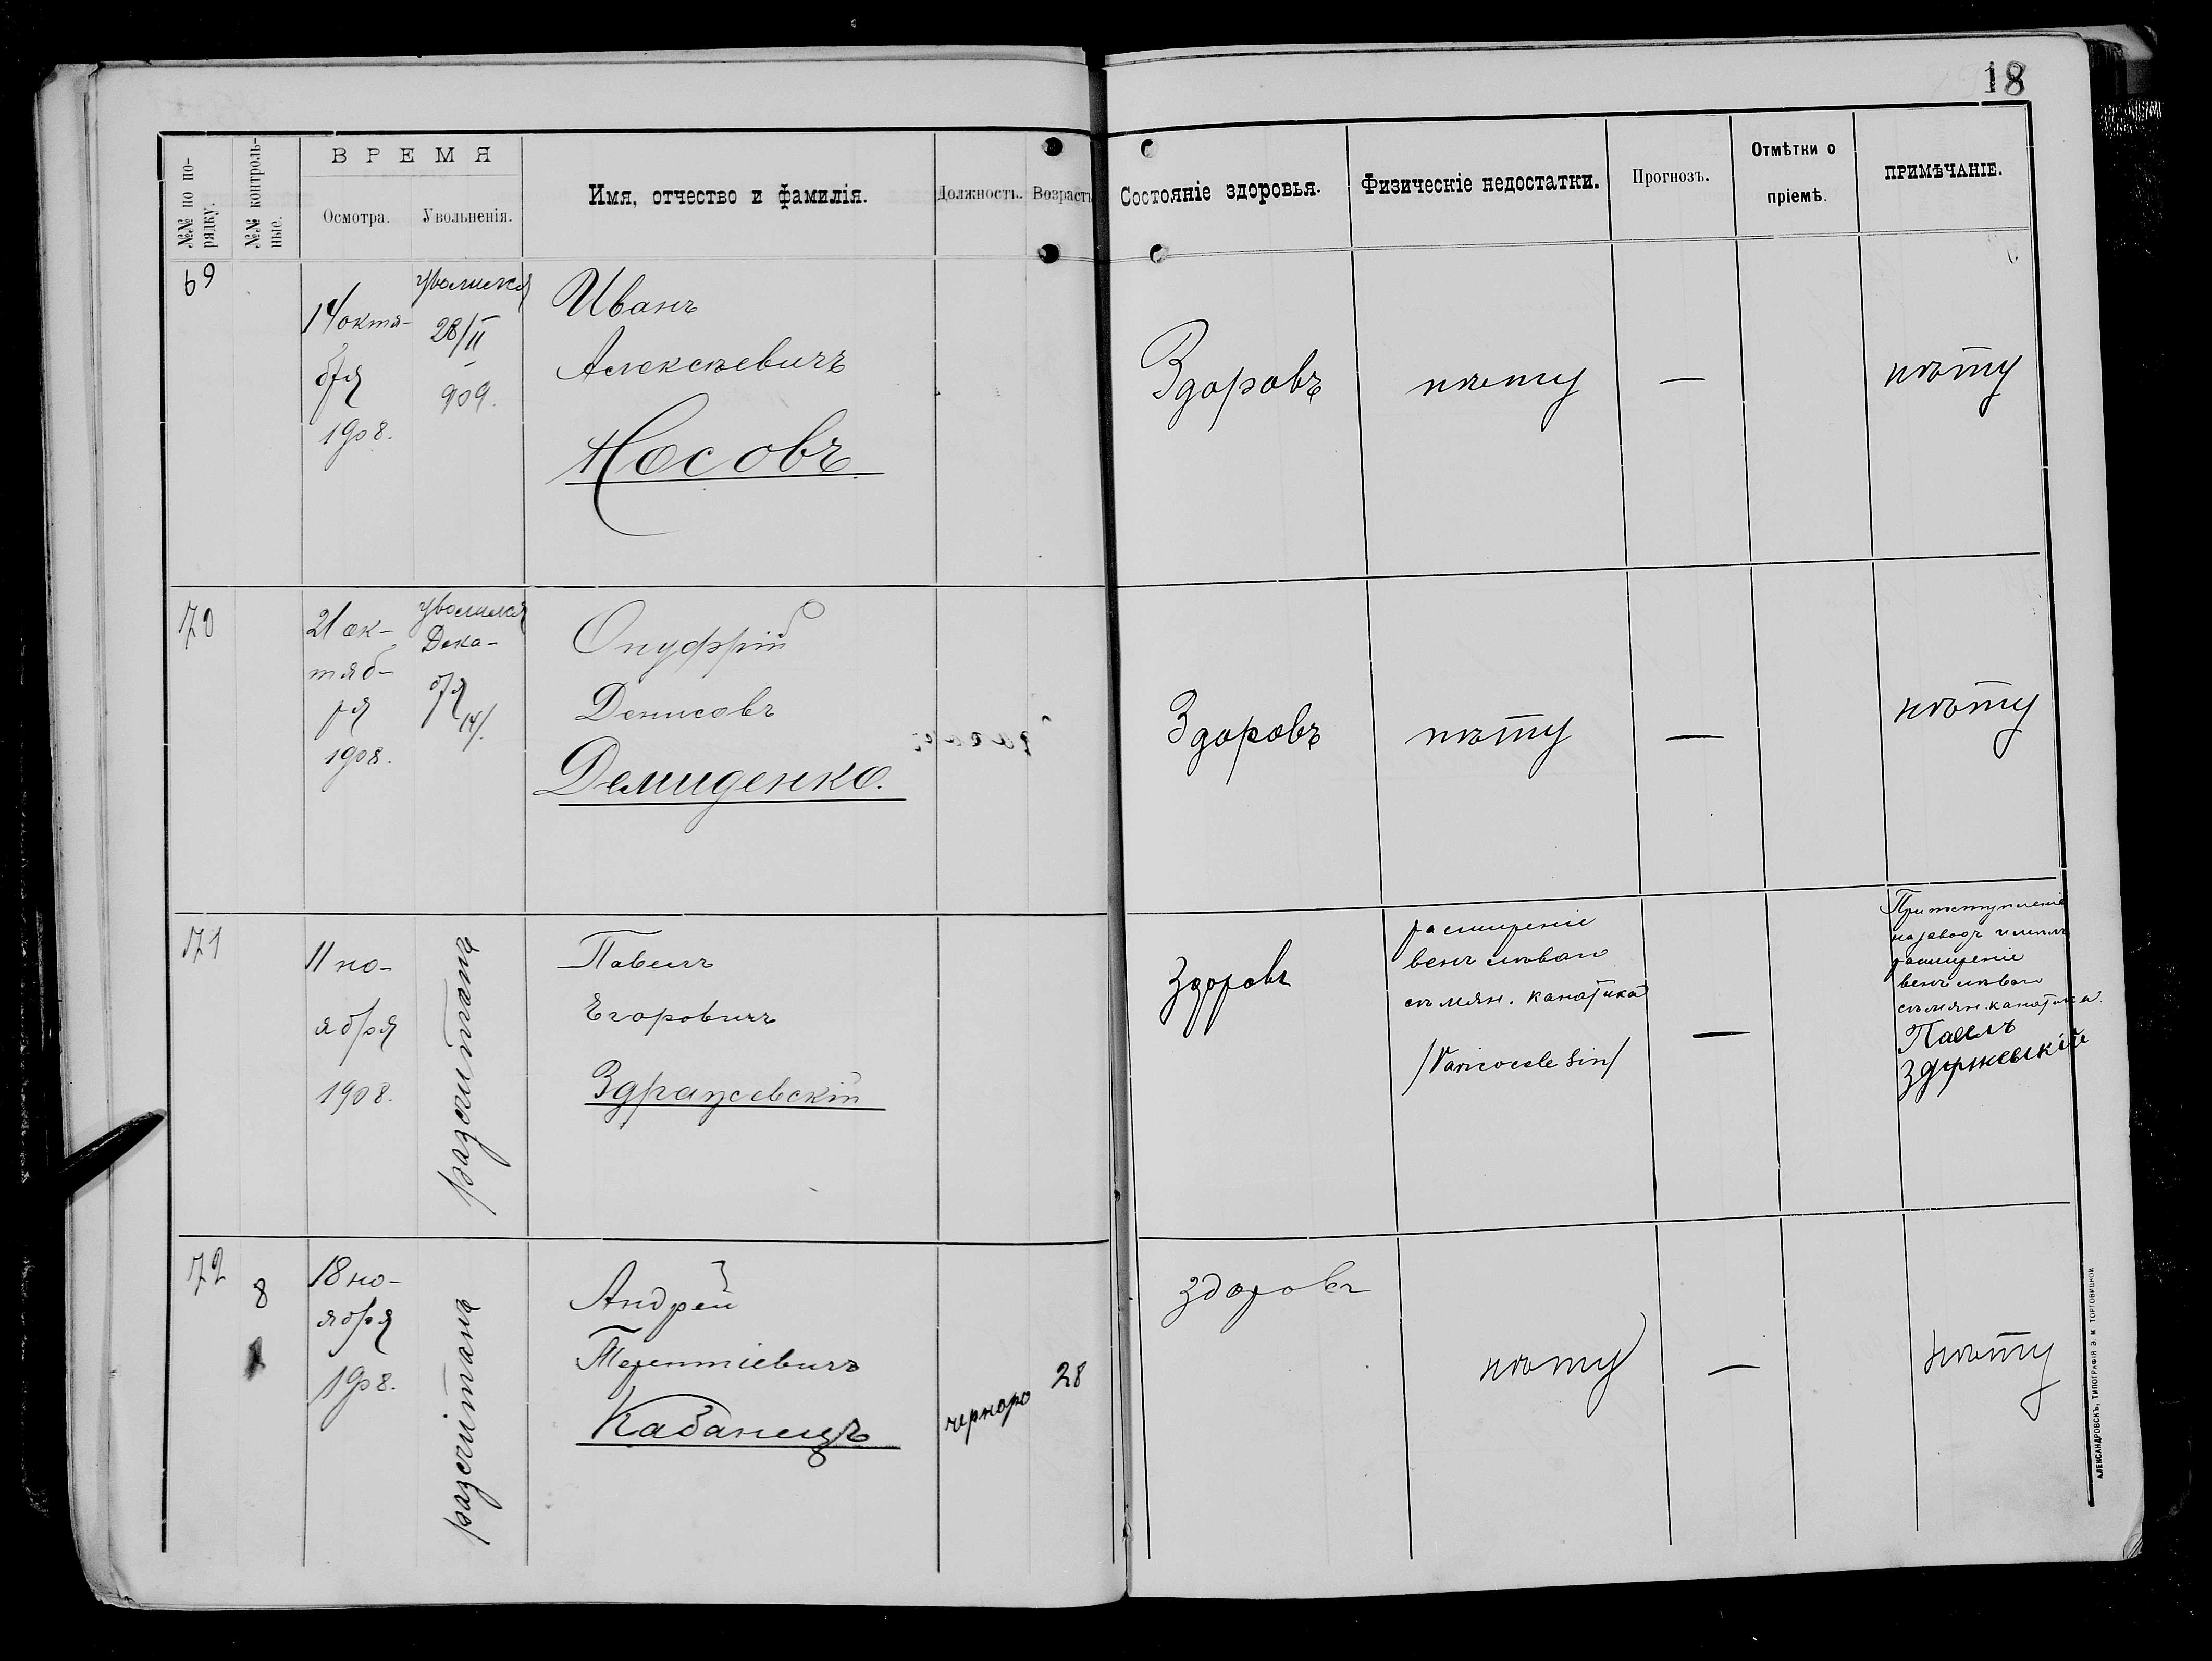 18
№№ по по-
рядку.
№№ контроль-
ные.
ВРЕМЯ
Осмотра.
Увольненія.
Имя, отчество и фамилія.
Должность.
Возрастъ
Состояніе здоровья.
Физическіе недостатки.
Прогнозъ.
Отмѣтки о
пріемѣ.
ПРИМѢЧАНІЕ.
69
14 октя-
бря
1908.
уволился
28/II
909.
Иванъ
Алексѣевичъ
Носовъ
Здоровъ
нѣту
—
нѣту
70
21 ок-
тяб-
ря
1908.
уволился
Дека-
бря
14/.
Онуфрій
Денисовъ
Демиденко.
Здоровъ
нѣту
—
нѣту
71
11 но-
ября
1908.
разсчитанъ
Павелъ
Егоровичъ
Здражевскій
Здоровъ
расширеніе
венъ лѣваго
сѣмян. канатика
/Varicocele sin/
—
При поступленіи
на заводъ имѣлъ
расширеніе
венъ лѣваго
сѣмян. канатика.
Павелъ
72
8
18 но-
ября
1908.
разсчитанъ
Андрей
Терентіевичъ
Кабанецъ
черноро
28
здоровъ
нѣту
—
нѣту
АЛЕКСАНДРОВСКЪ, ТИПОГРАФІЯ Э. М. ТОРГОВИЦКОЙ